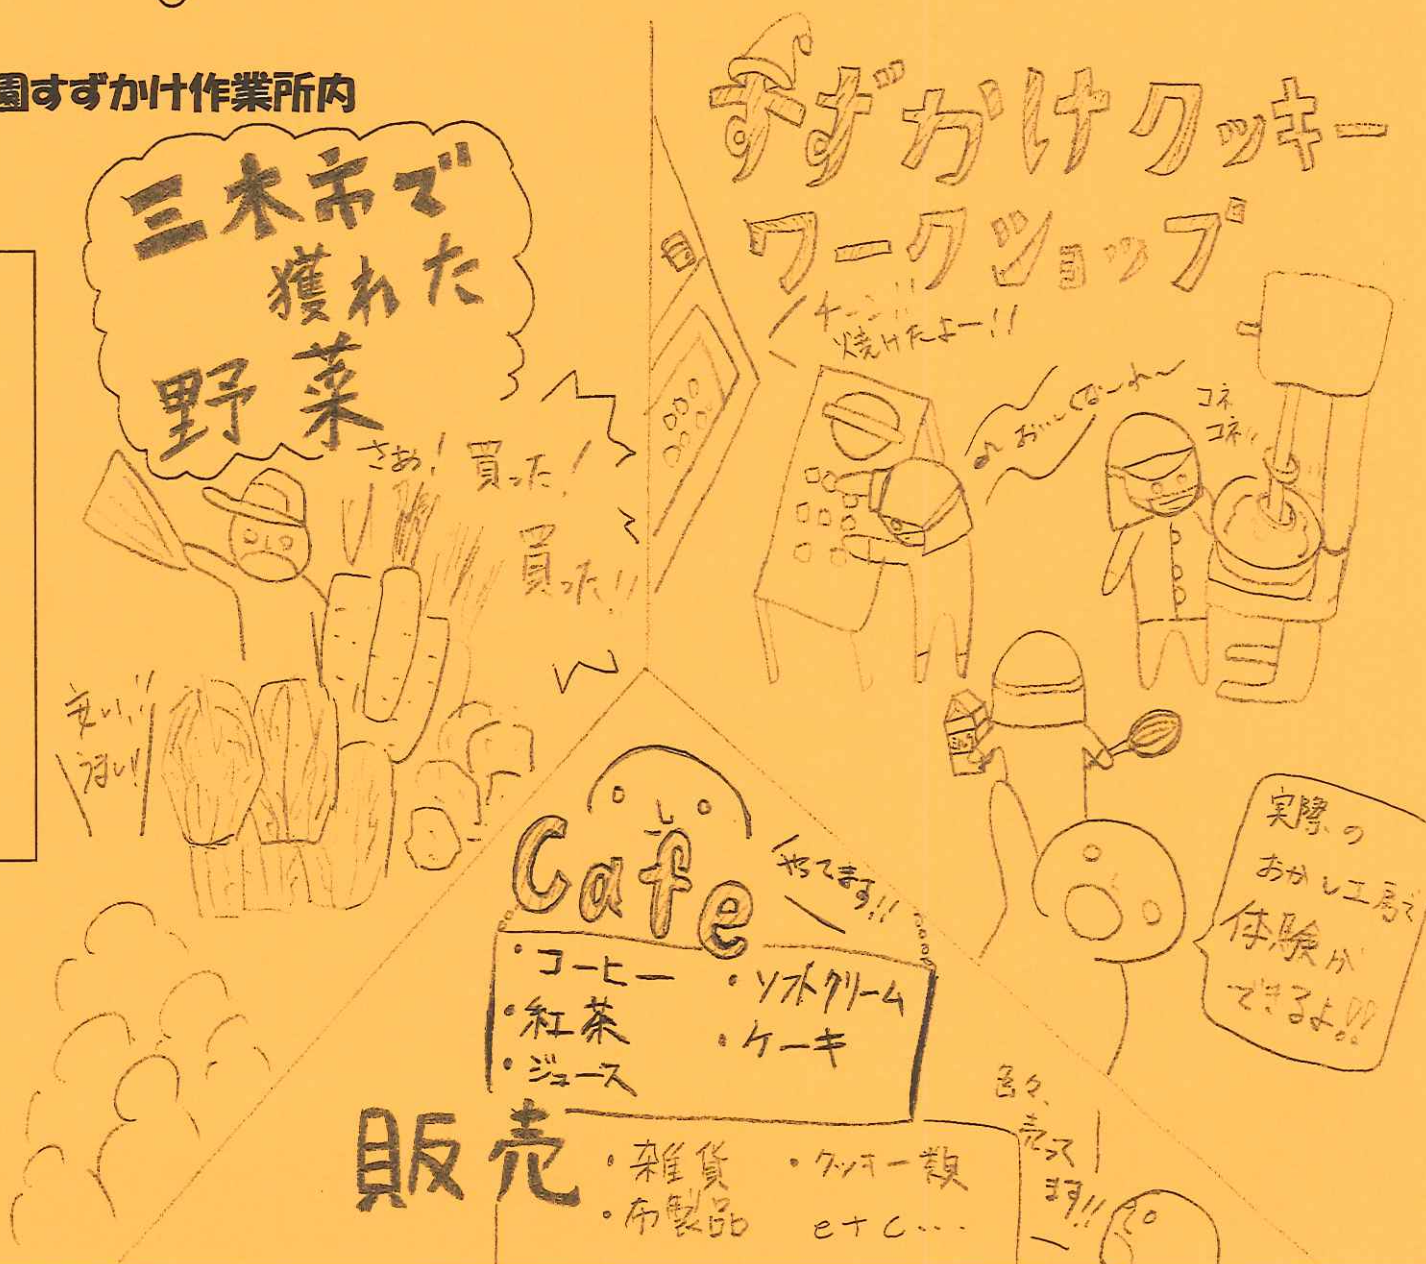 園すずかけ作業所内
三木市で
獲れた
野菜
さあ!買った!
買った!!
安い!!
うまい!!
すずかけクッキー
ワークショップ
チーン!!
焼けたよー!!
♪おいしくなーれー
コネ
コネ!!
実際の
おかし工場で
体験が
できるよ!!
Cafe
やってます!!
・コーヒー
・紅茶
・ジュース
・ソフトクリーム
・ケーキ
販売
・雑貨
・布製品
・クッキー類
etc...
色々、
売って
ます!!